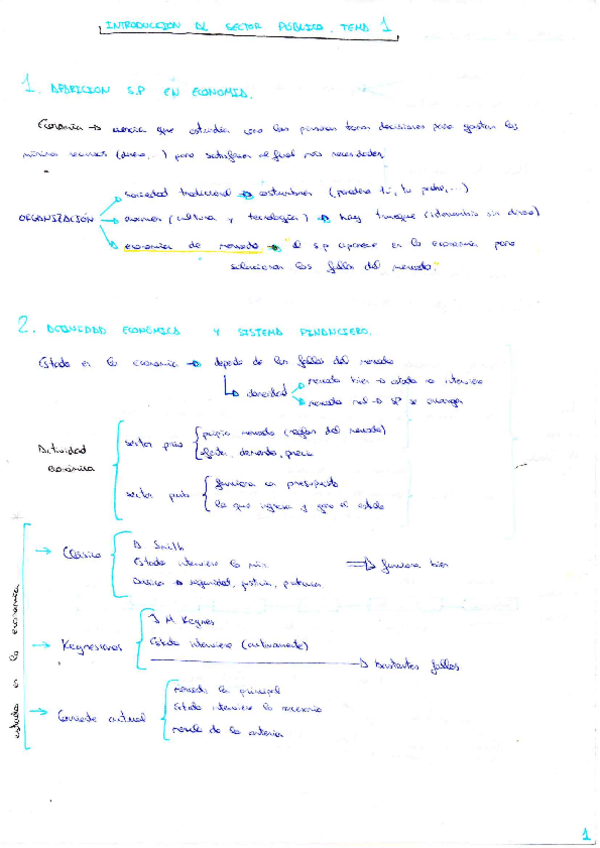 INTRODUCCION AL SECTOR PÚBLICO. TEMA 1
1. APARICION S.P EN ECONOMIA.
Economía → ciencia que estudia como las personas toman decisiones para gastar los
mínimos recursos (dinero,..) para satisfacer al final más necesidades.
sociedad tradicional → costumbres (panadero tú, tu padre,...)
ORGANIZACIÓN → (cultura y tecnología) → hay trueque (intercambio sin dinero)
economía de mercado → "el s.p aparece en la economía para
solucionar los fallos del mercado."
2. ACTIVIDAD ECONÓMICA Y SISTEMA FINANCIERO.
Estado en la economía → depende de los fallos del mercado
mercado bien → estado no interviene
mercado mal → SP se encarga
Actividad Económica
sector priv propio mercado (reglas del mercado)
oferta, demanda, precio
sector públ funciona un presupuesto
lo que ingresa y gasta el estado
estado en la economia
→ Clásico A Smith
Estado interviene lo mín ⇒ funciona bien
→ seguridad, justicia,
→ Keynesianos J M. Keynes
Estado interviene (activamente)
→ bastantes fallos
→ Corriente actual mercado lo principal
Estado interviene lo necesario
mezcla de lo anterior
1